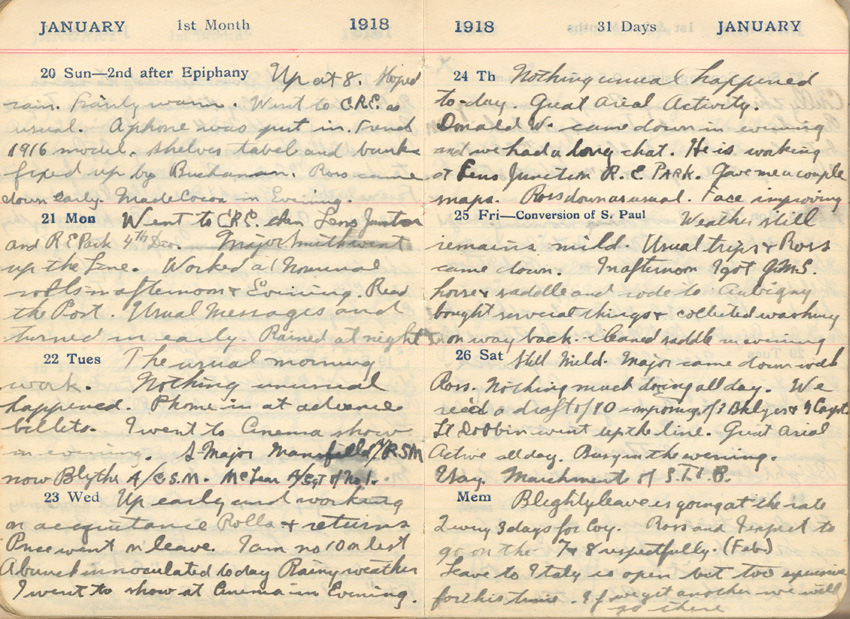 JANUARY 1st Month 1918
20 Sun—2nd after Epiphany Up at 8. Hoped
rain. Fairly warm. Went to C.R.E. as
usual. A phone was put in. French
1916 model. Shelves tabel and bunks
fixed up by Buchanan. Ross came
down early. Made Cocoa in Evening.
21 Mon Went to C.R.E. then Lens Junction
and R E Park 4th Div. Major Smith went
up the Line. Worked at Nominal
rolls in afternoon & Evening. Read
the Post. Usual Messages and
turned in early. Rained at night
22 Tues The usual morning
work. Nothing unusual
happened. Phone in at advance
billets. I went to Cinema show
in evening. S Major Mansfield R.S.M
now Blythe A/C.S.M. McLean A/Sgt of No 1.
23 Wed Up early and working
on acquitance Rolls & returns
Price went on leave. I am no 10 on list
A bunch innoculated to day Rainy weather
I went to show at Cinema in Evening.
1918 31 Days JANUARY
24 Th Nothing unusual happened
to-day. Great Arial Activity.
Donald W. came down in evening
and we had a long chat. He is working
at Lens Junction R.E. PARK. Gave me a couple
maps. Ross down as usual. Face improving
25 Fri—Conversion of S. Paul Weather still
remains mild. Usual trips & Ross
came down. In afternoon I got
horse & saddle and rode to Aubigny
bought several things & collected washing
on way back. cleaned saddle in evening
26 Sat Still Mild. Major came down with
Ross. Nothing much doing all day. We
rec'd a draft of 10 of 3 &
Lt Dobbin went up the line. Great Arial
Active all day. Busy in the evening.
Usay. Marchments of
Mem Blighty leave is going at the rate
2 every 3 days for Coy. Ross and I expect to
go on the 7 & 8 respectfully. (Feb)
Leave to Italy is open but too expensive
for this time. If we get another we will
go there